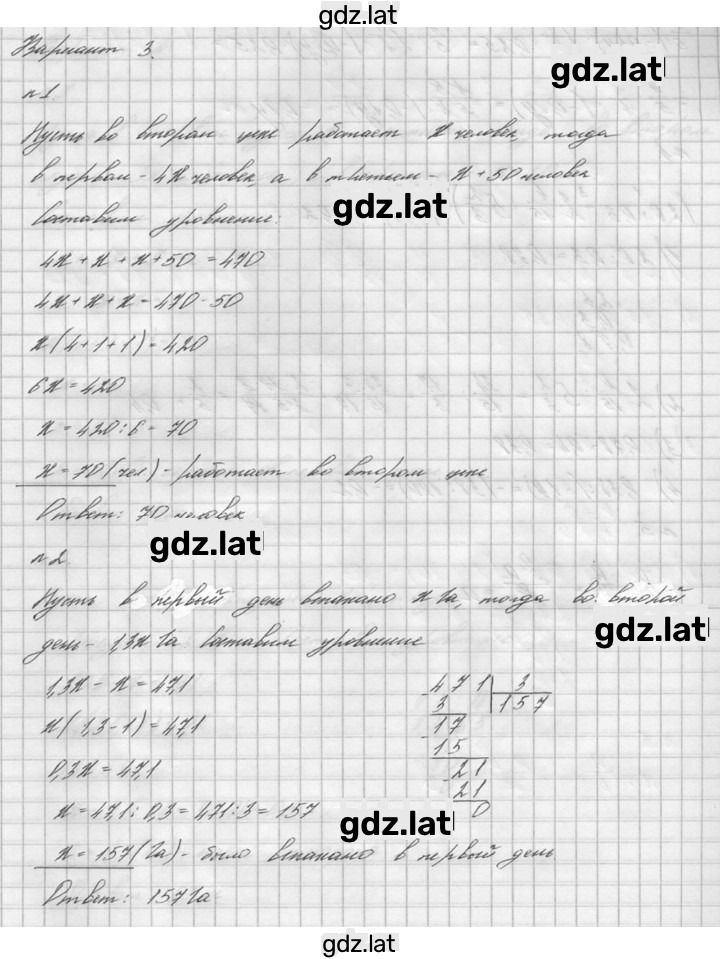 gdz.lat
Вариант 3.
gdz.lat
n 1.
Пусть во втором цехе работает x человек, тогда
в первом - 4x человек, а в третьем - x + 50 человек
gdz.lat
Составим уравнение:
4x + x + x + 50 = 470
4x + x + x = 470 - 50
x(4+1+1) = 420
6x = 420
x = 420 : 6 = 70
x = 70 (чел) - работает во втором цехе
Ответ: 70 человек
gdz.lat
n 2.
Пусть в первый день вспахано x га, тогда во второй
gdz.lat
день - 1,3x га Составим уравнение
1,3x - x = 47,1
x(1,3-1) = 47,1
0,3x = 47,1
x = 47,1 : 0,3 = 471 : 3 = 157
471 3
3 157
17
15
21
21
0
gdz.lat
x = 157 (га) - было вспахано в первый день
Ответ: 157 га
gdz.lat